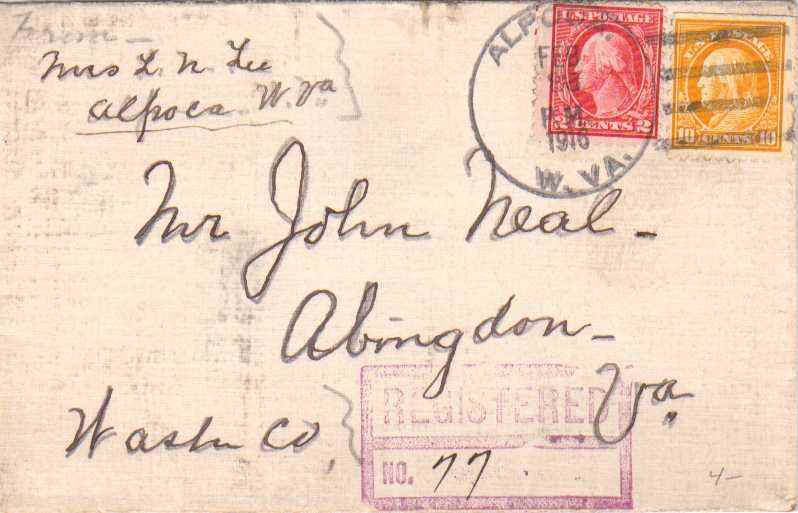 From —
Mrs L. N. Lee
Alpoca W. Va
ALPOCA
FEB
P.M.
1916
W. VA.
U.S. POSTAGE
2 CENTS 2
U.S. POSTAGE
10 CENTS 10
Mr John Neal —
Abingdon —
Va.
Washn Co,
REGISTERED
NO. 77
4–